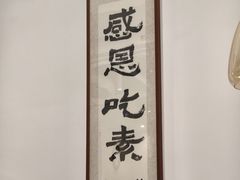 感恩吃素